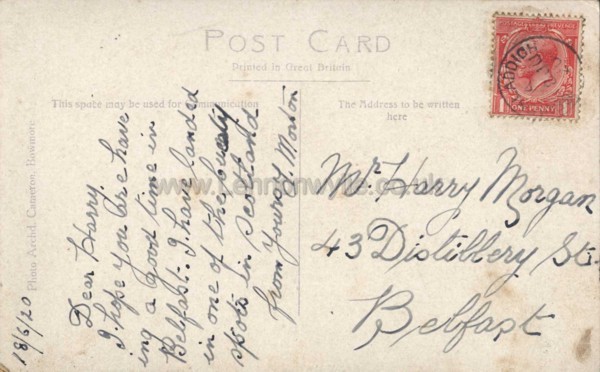 POST CARD
Printed in Great Britain
This space may be used for communication
The Address to be written
here
Photo Archd. Cameron, Bowmore
Dear Harry
I hope you are have
ing a good time in
Belfast. I have landed
in one of the
spots in Scotland
from yours J. Morton
18/6/20
Mr. Harry Morgan
43 Distillery St.
Belfast
ONE PENNY
1 1
www.Lennonwylie.co.uk